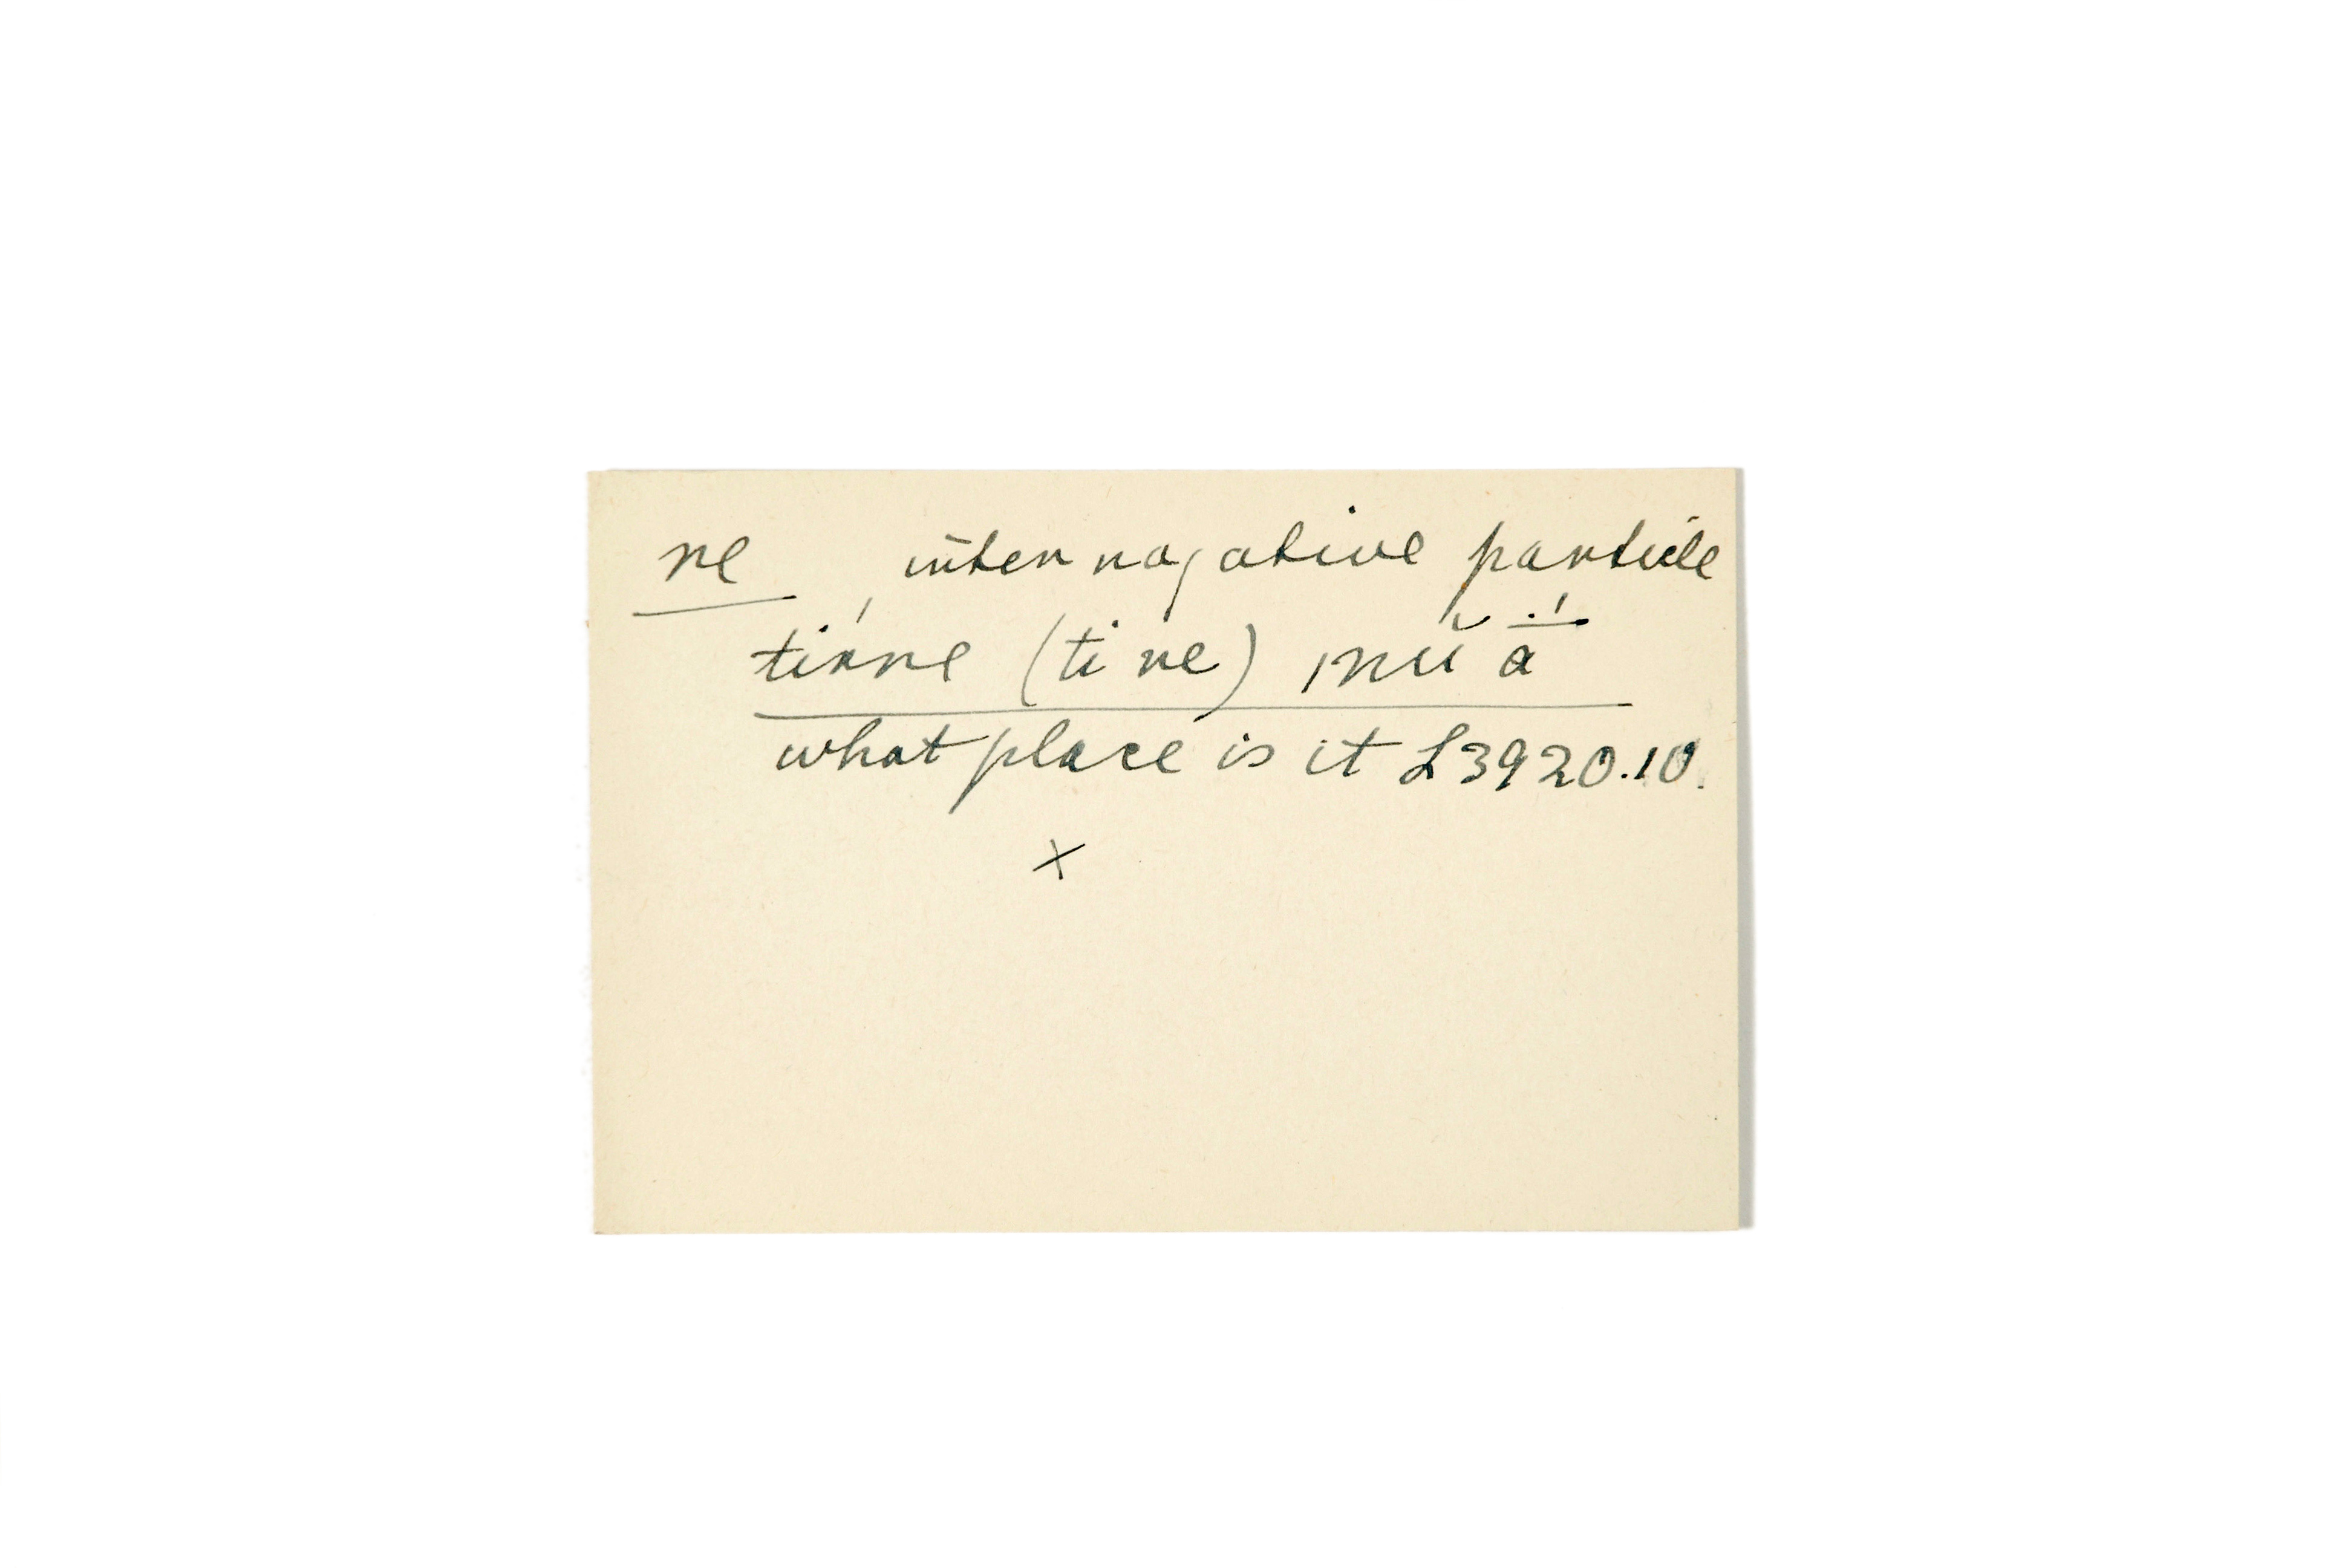 ne interrogative particle
tińne (ti ne) ǀnŭ ā̇́
what place is it L3920.10.
x